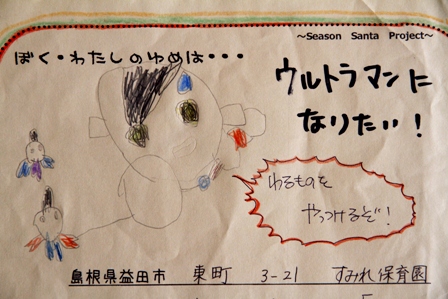 ～Season Santa Project～
ぼく・わたしのゆめは・・・
ウルトラマンに
なりたい！
わるものを
やっつけるぞ！
島根県益田市 東町 3-21 すみれ保育園